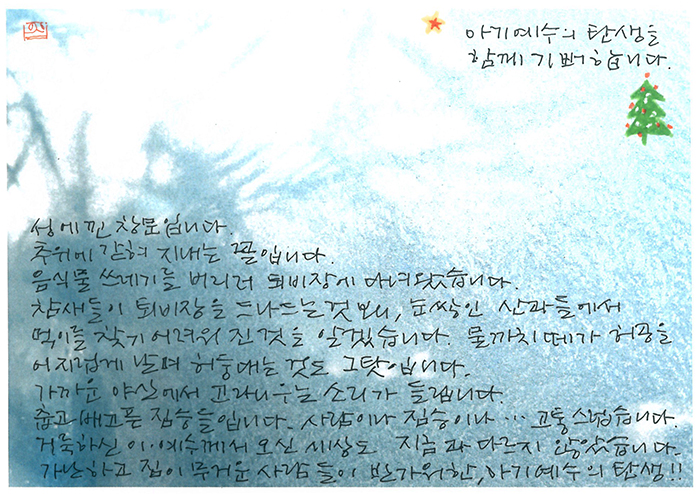 아기예수의 탄생을
함께 기뻐합니다.
성에 낀 창문입니다.
추위에 갇혀 지내는 꼴입니다.
음식물 쓰레기를 버리러 퇴비장에 다녀왔습니다.
참새들이 퇴비장을 드나드는것 보니, 눈쌓인 산과들에서
먹이를 찾기 어려워 진것을 알겠습니다. 물까치떼가 허공을
어지럽게 날며 허둥대는 것도 그탓입니다.
가까운 야산에서 고라니우는 소리가 들립니다.
춥고 배고픈 짐승들입니다. 사람이나 짐승이나 … 고통스럽습니다.
거룩하신 이·예수께서 오신 세상도 지금과 다르지 않았습니다.
가난하고 짐이 무거운 사람들이 반가워한, 아기예수의 탄생!!